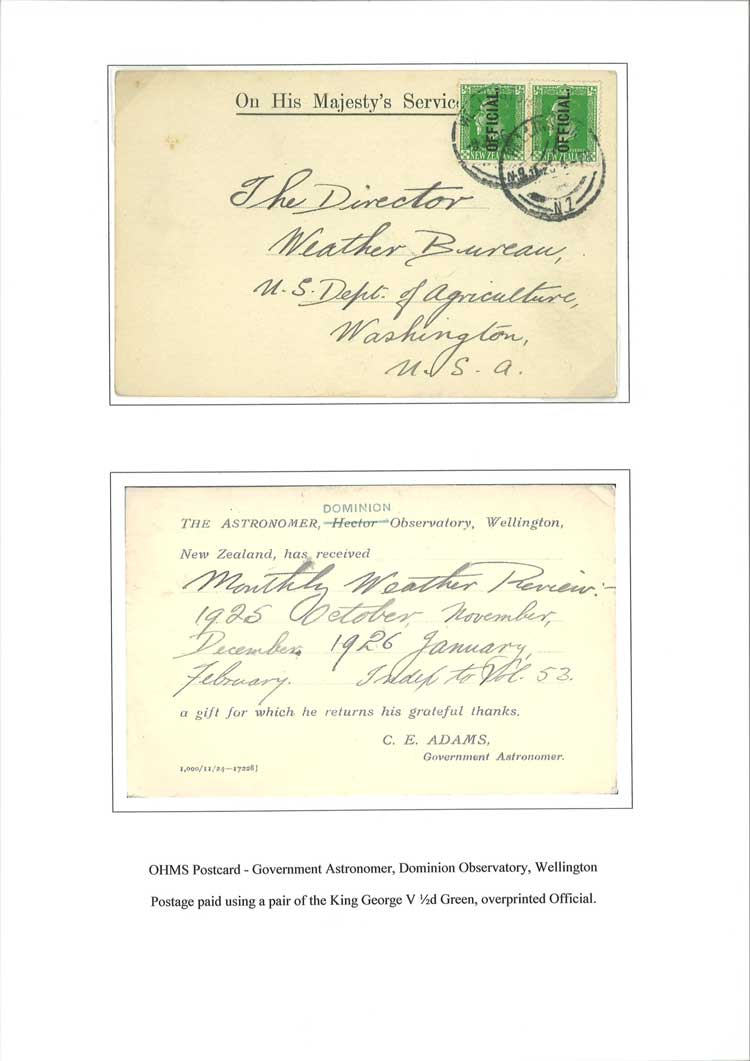 On His Majesty's Service
OFFICIAL.
OFFICIAL.
NEW ZEALAND
NEW ZEALAND
N.Z
The Director
Weather Bureau,
U.S. Dept. of Agriculture,
Washington,
U.S.A.
DOMINION
THE ASTRONOMER, Hector Observatory, Wellington,
New Zealand, has received
Monthly Weather Review:-
1925 October, November,
December, 1926 January,
February. Index to Vol. 53.
a gift for which he returns his grateful thanks.
C. E. ADAMS,
Government Astronomer.
1,000/11/24—17228]
OHMS Postcard - Government Astronomer, Dominion Observatory, Wellington
Postage paid using a pair of the King George V ½d Green, overprinted Official.